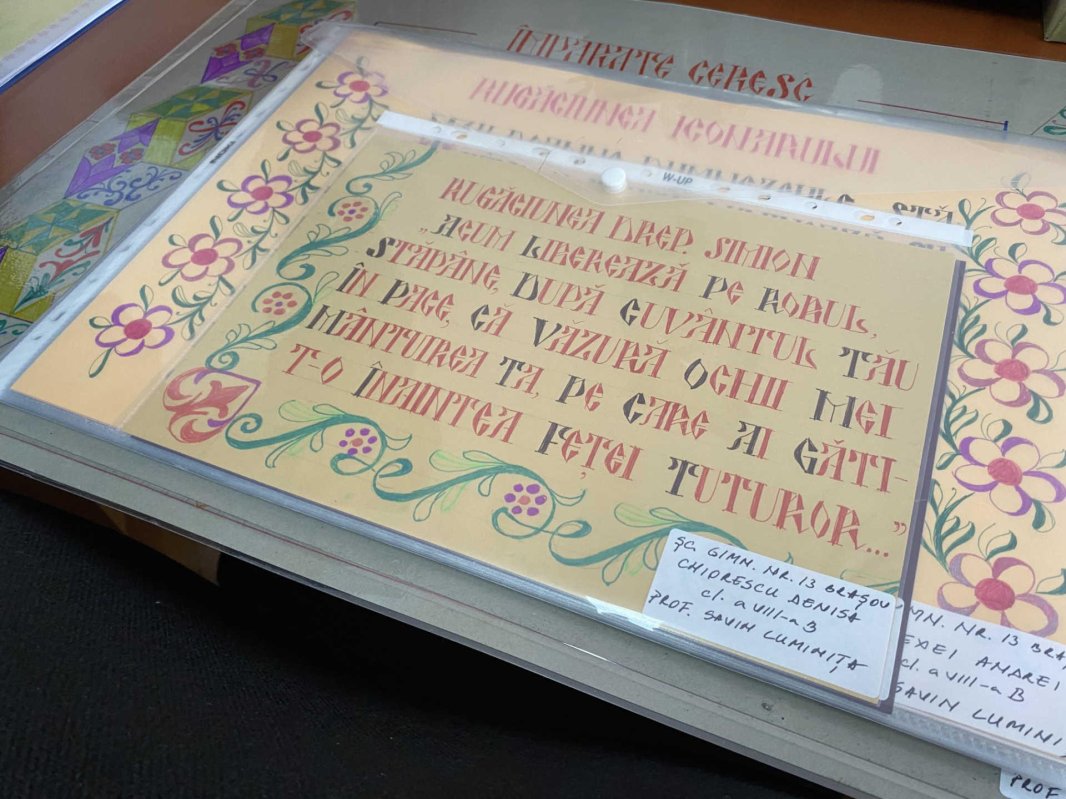 ÎMPĂRATE CERESC
RUGĂCIUNEA ICONARULUI
W-UP
RUGĂCIUNEA DREP. SIMION
„ACUM LIBEREAZĂ PE ROBUL,
STĂPÂNE, DUPĂ CUVÂNTUL TĂU
ÎN PACE, CĂ VĂZURĂ OCHII MEI
MÂNTUIREA TA, PE CARE AI GĂTI-
T-O ÎNAINTEA FEȚEI TUTUROR..."
ȘC. GIMN. NR. 13 BRAȘOV
CHIORESCU DENISA
cl. a VIII-a B
PROF. SAVIN LUMINIȚA
MN. NR. 13 BRA
ANDREI
cl. a VIII-a B
SAVIN LUMINI
PROF